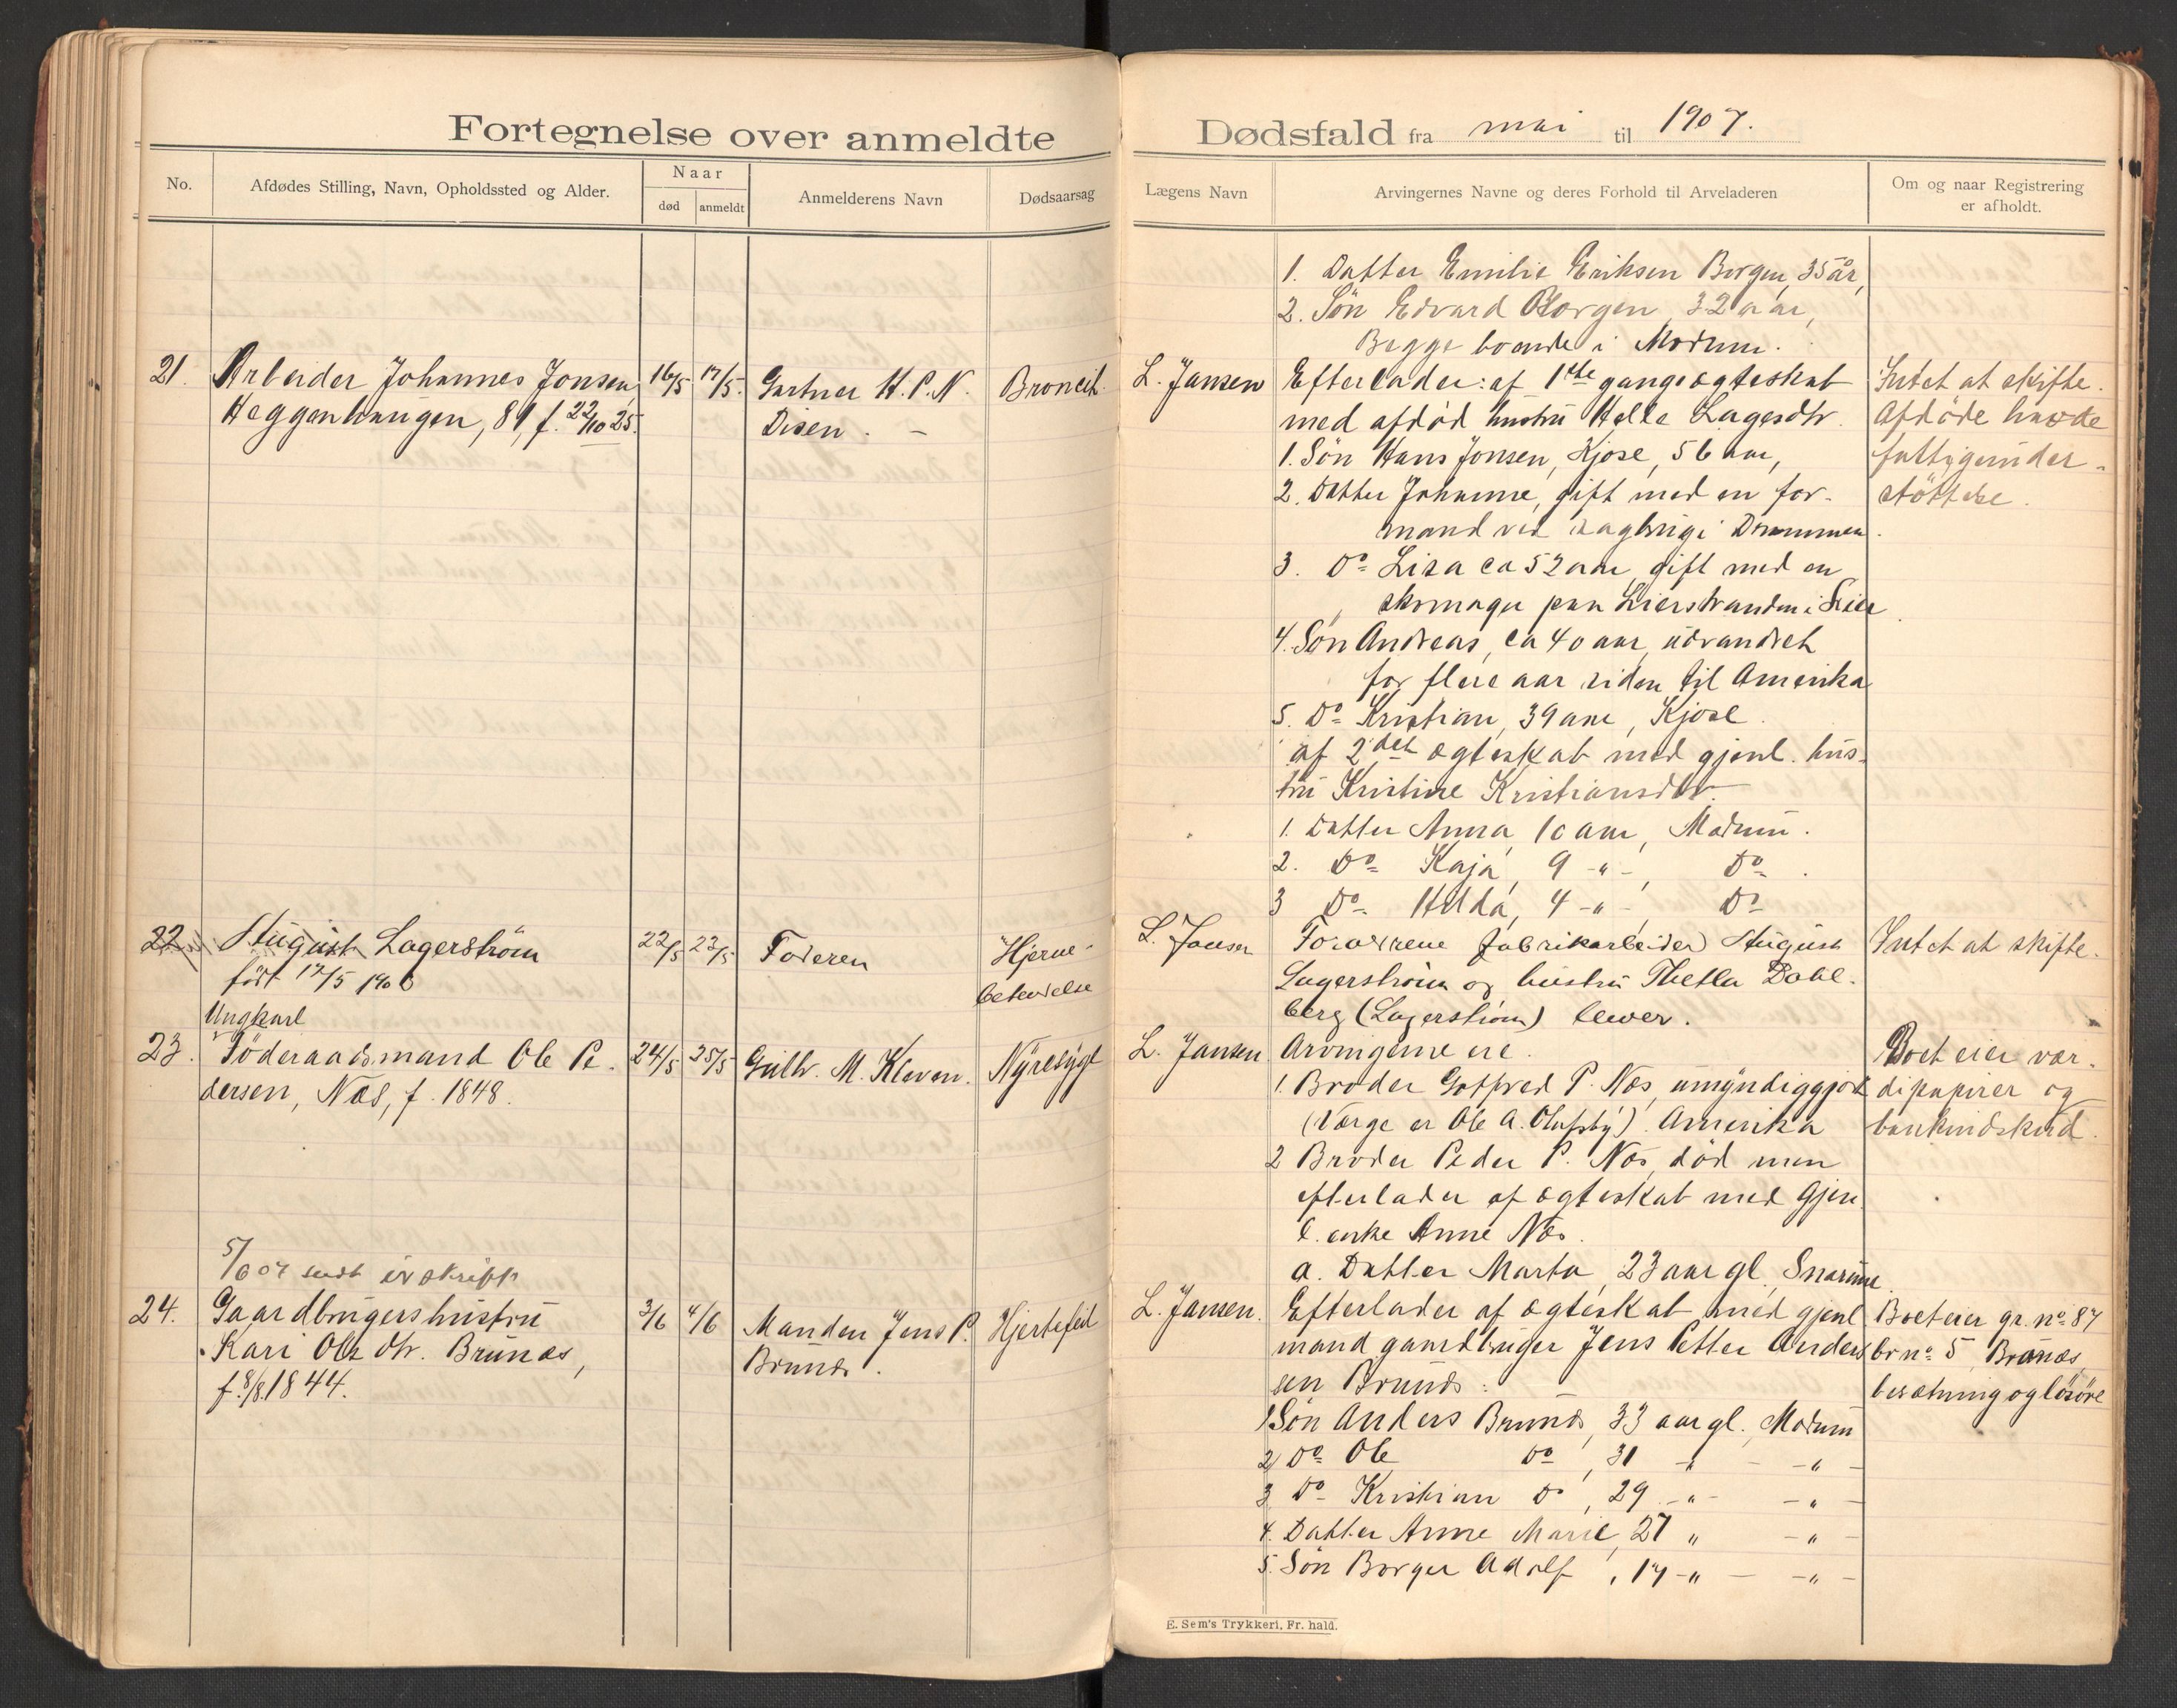 Fortegnelse over anmeldte
No.
Afdødes Stilling, Navn, Opholdssted og Alder.
Naar
død
anmeldt
Anmelderens Navn
Dødsaarsag
21. Arbeider Johannes Jonsen, 16/5 17/5. Gartner H. P. N. Bronchit
Heggenhaugen, 81, f. 22/10 25. Disen. -
22 August Lagerström 22/5 23/5 Faderen Hjerne-
født 17/5 1906 betændelse
Ungkarl
23. Föderaadsmand Ole Pe- 24/5 25/5 Gulbr. M. Kleven. Nyresygd
dersen, Næs, f. 1848.
5/6 07 sendt
24. Gaardbrugershustru 3/6 4/6 Manden Jens P. Hjertefeil
Kari Olsdtr. Brunæs, Brunæs.
f. 8/8. 1844.
Dødsfald fra mai til 1907.
Lægens Navn
Arvingernes Navne og deres Forhold til Arveladeren
Om og naar Registrering
er afholdt.
1. Datter Emilie Eriksen Borgen, 35 år,
2. Søn Edvard Borgen, 32 aar,
Begge boende i Modum.
L. Jansen Efterlader: af 1ste gangs ægteskab Intet at skifte.
med afdød hustru Helle Lagesdtr. Afdøde havde
1. Søn Hans Jonsen, Kjøse, 56 aar, fattigunder-
2. Datter Johanne, gift med en for- støttelse.
mand ved sagbrug i Drammen.
3. Do Lisa ca 52 aar, gift med en
skomager paa Lierstranden i Lier.
4. Søn Andreas, ca 40 aar, udvandret
for flere aar siden til Amerika
5. Do Kristian, 39 aar, Kjøse.
af 2det ægteskab med gjenl. hus-
tru Kristine Kristiansdtr.
1. Datter Anna, 10 aar, Modum.
2. Do Kaja, 9 -"-, Do.
3 Do Hilda, 4 -"-, Do
L. Jansen Forældrene fabrikarbeider August Intet at skifte.
Lagerström og hustru Thella Dahl-
berg (Lagerström) lever.
L. Jansen Arvingerne ere. Boet eier vær-
1. Broder Gotfred P. Næs, umyndiggjort dipapirer og
(Værge er Ole A. Olufsby). Amerika bankindskud.
2 Broder Peder P. Næs, død men
efterlader af ægteskab med gjen-
l. enke Anne Næs.
a. Datter Marta, 23 aar gl. Snarum.
L. Jansen. Efterlader af ægteskab med gjenl. Boet eier gr. no 87
mand gaardbruger Jens Petter Anders br no 5 Brunæs,
sen Brunæs: besætning og løsøre
1 Søn Anders Brunæs, 33 aar gl., Modum
2 Do Ole Do, 31 -"- -"-
3 Do Kristian Do, 29 -"- -"-
4. Datter Anne Marie, 27 " -"-
5. Søn Borger Adolf, 17 -"- -"-
E. Sem's Trykkeri, Fr. hald.